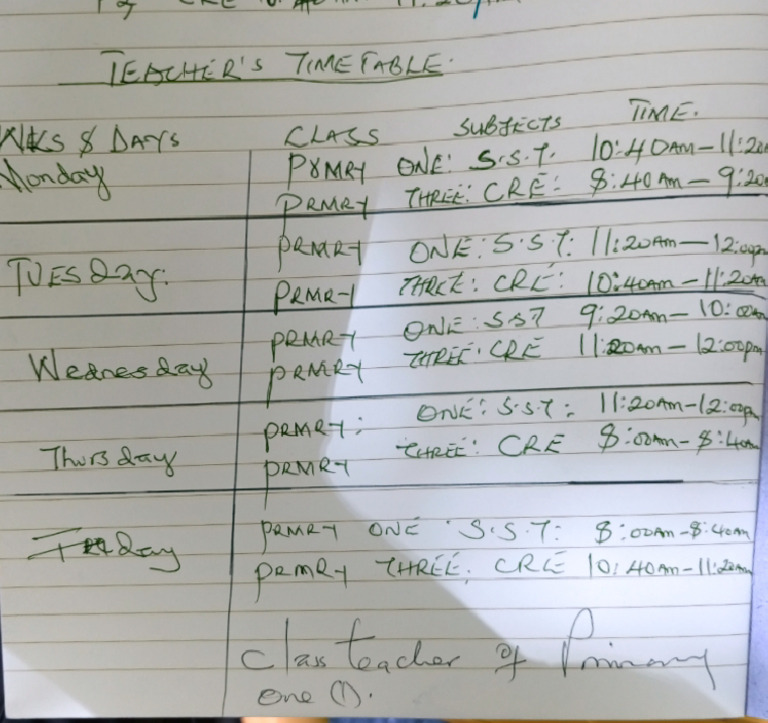 CRE
TEACHER'S TIMETABLE.
WKS & DAYS CLASS SUBJECTS TIME.
Monday PRMRY ONE: S.S.T. 10:40AM-11:20
PRMRY THREE: CRE: 8:40AM-9:20
TUESday. PRMRY ONE: S.S.T: 11:20AM-12:00pm
PRMRY THREE: CRE: 10:40AM-11:20AM
Wednesday PRMRY ONE: SST 9:20AM-10:00AM
PRMRY THREE. CRE 11:20AM-12:00pm
Thursday PRMRY: ONE: S.S.T: 11:20AM-12:00pm
PRMRY THREE: CRE 8:00AM-8:40AM
Friday PRMRY ONE S.S.T: 8:00AM-8:40AM
PRMRY THREE. CRE 10:40AM-11:20AM
Class teacher of Primary
one (1).